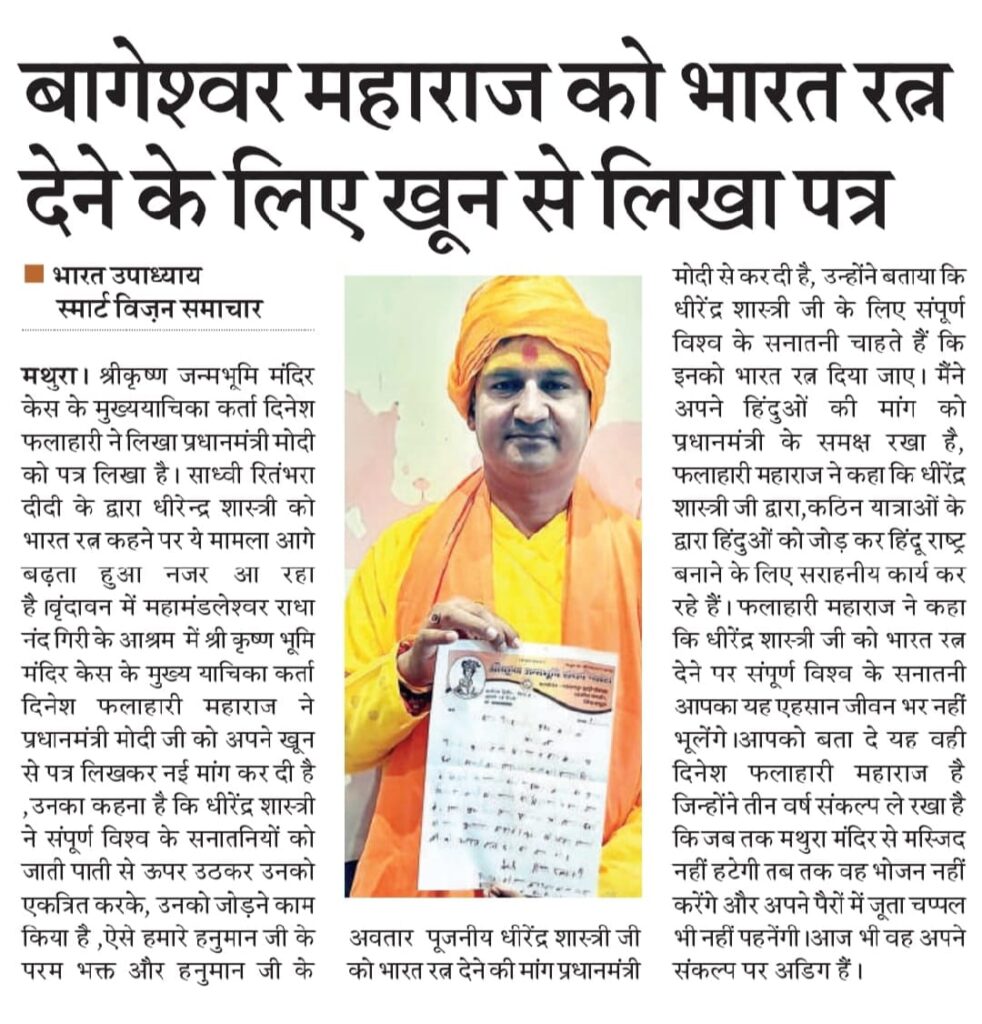 बागेश्वर महाराज को भारत रत्न
देने के लिए खून से लिखा पत्र
भारत उपाध्याय
स्मार्ट विज़न समाचार
मथुरा। श्रीकृष्ण जन्मभूमि मंदिर
केस के मुख्ययाचिका कर्ता दिनेश
फलाहारी ने लिखा प्रधानमंत्री मोदी
को पत्र लिखा है। साध्वी रितंभरा
दीदी के द्वारा धीरेन्द्र शास्त्री को
भारत रत्न कहने पर ये मामला आगे
बढ़ता हुआ नजर आ रहा
है।वृंदावन में महामंडलेश्वर राधा
नंद गिरी के आश्रम में श्री कृष्ण भूमि
मंदिर केस के मुख्य याचिका कर्ता
दिनेश फलाहारी महाराज ने
प्रधानमंत्री मोदी जी को अपने खून
से पत्र लिखकर नई मांग कर दी है
,उनका कहना है कि धीरेंद्र शास्त्री
ने संपूर्ण विश्व के सनातनियों को
जाती पाती से ऊपर उठकर उनको
एकत्रित करके, उनको जोड़ने काम
किया है ,ऐसे हमारे हनुमान जी के
परम भक्त और हनुमान जी के
अवतार पूजनीय धीरेंद्र शास्त्री जी
को भारत रत्न देने की मांग प्रधानमंत्री
मोदी से कर दी है, उन्होंने बताया कि
धीरेंद्र शास्त्री जी के लिए संपूर्ण
विश्व के सनातनी चाहते हैं कि
इनको भारत रत्न दिया जाए। मैंने
अपने हिंदुओं की मांग को
प्रधानमंत्री के समक्ष रखा है,
फलाहारी महाराज ने कहा कि धीरेंद्र
शास्त्री जी द्वारा,कठिन यात्राओं के
द्वारा हिंदुओं को जोड़ कर हिंदू राष्ट्र
बनाने के लिए सराहनीय कार्य कर
रहे हैं। फलाहारी महाराज ने कहा
कि धीरेंद्र शास्त्री जी को भारत रत्न
देने पर संपूर्ण विश्व के सनातनी
आपका यह एहसान जीवन भर नहीं
भूलेंगे।आपको बता दे यह वही
दिनेश फलाहारी महाराज है
जिन्होंने तीन वर्ष संकल्प ले रखा है
कि जब तक मथुरा मंदिर से मस्जिद
नहीं हटेगी तब तक वह भोजन नहीं
करेंगे और अपने पैरों में जूता चप्पल
भी नहीं पहनेंगी।आज भी वह अपने
संकल्प पर अडिग हैं।